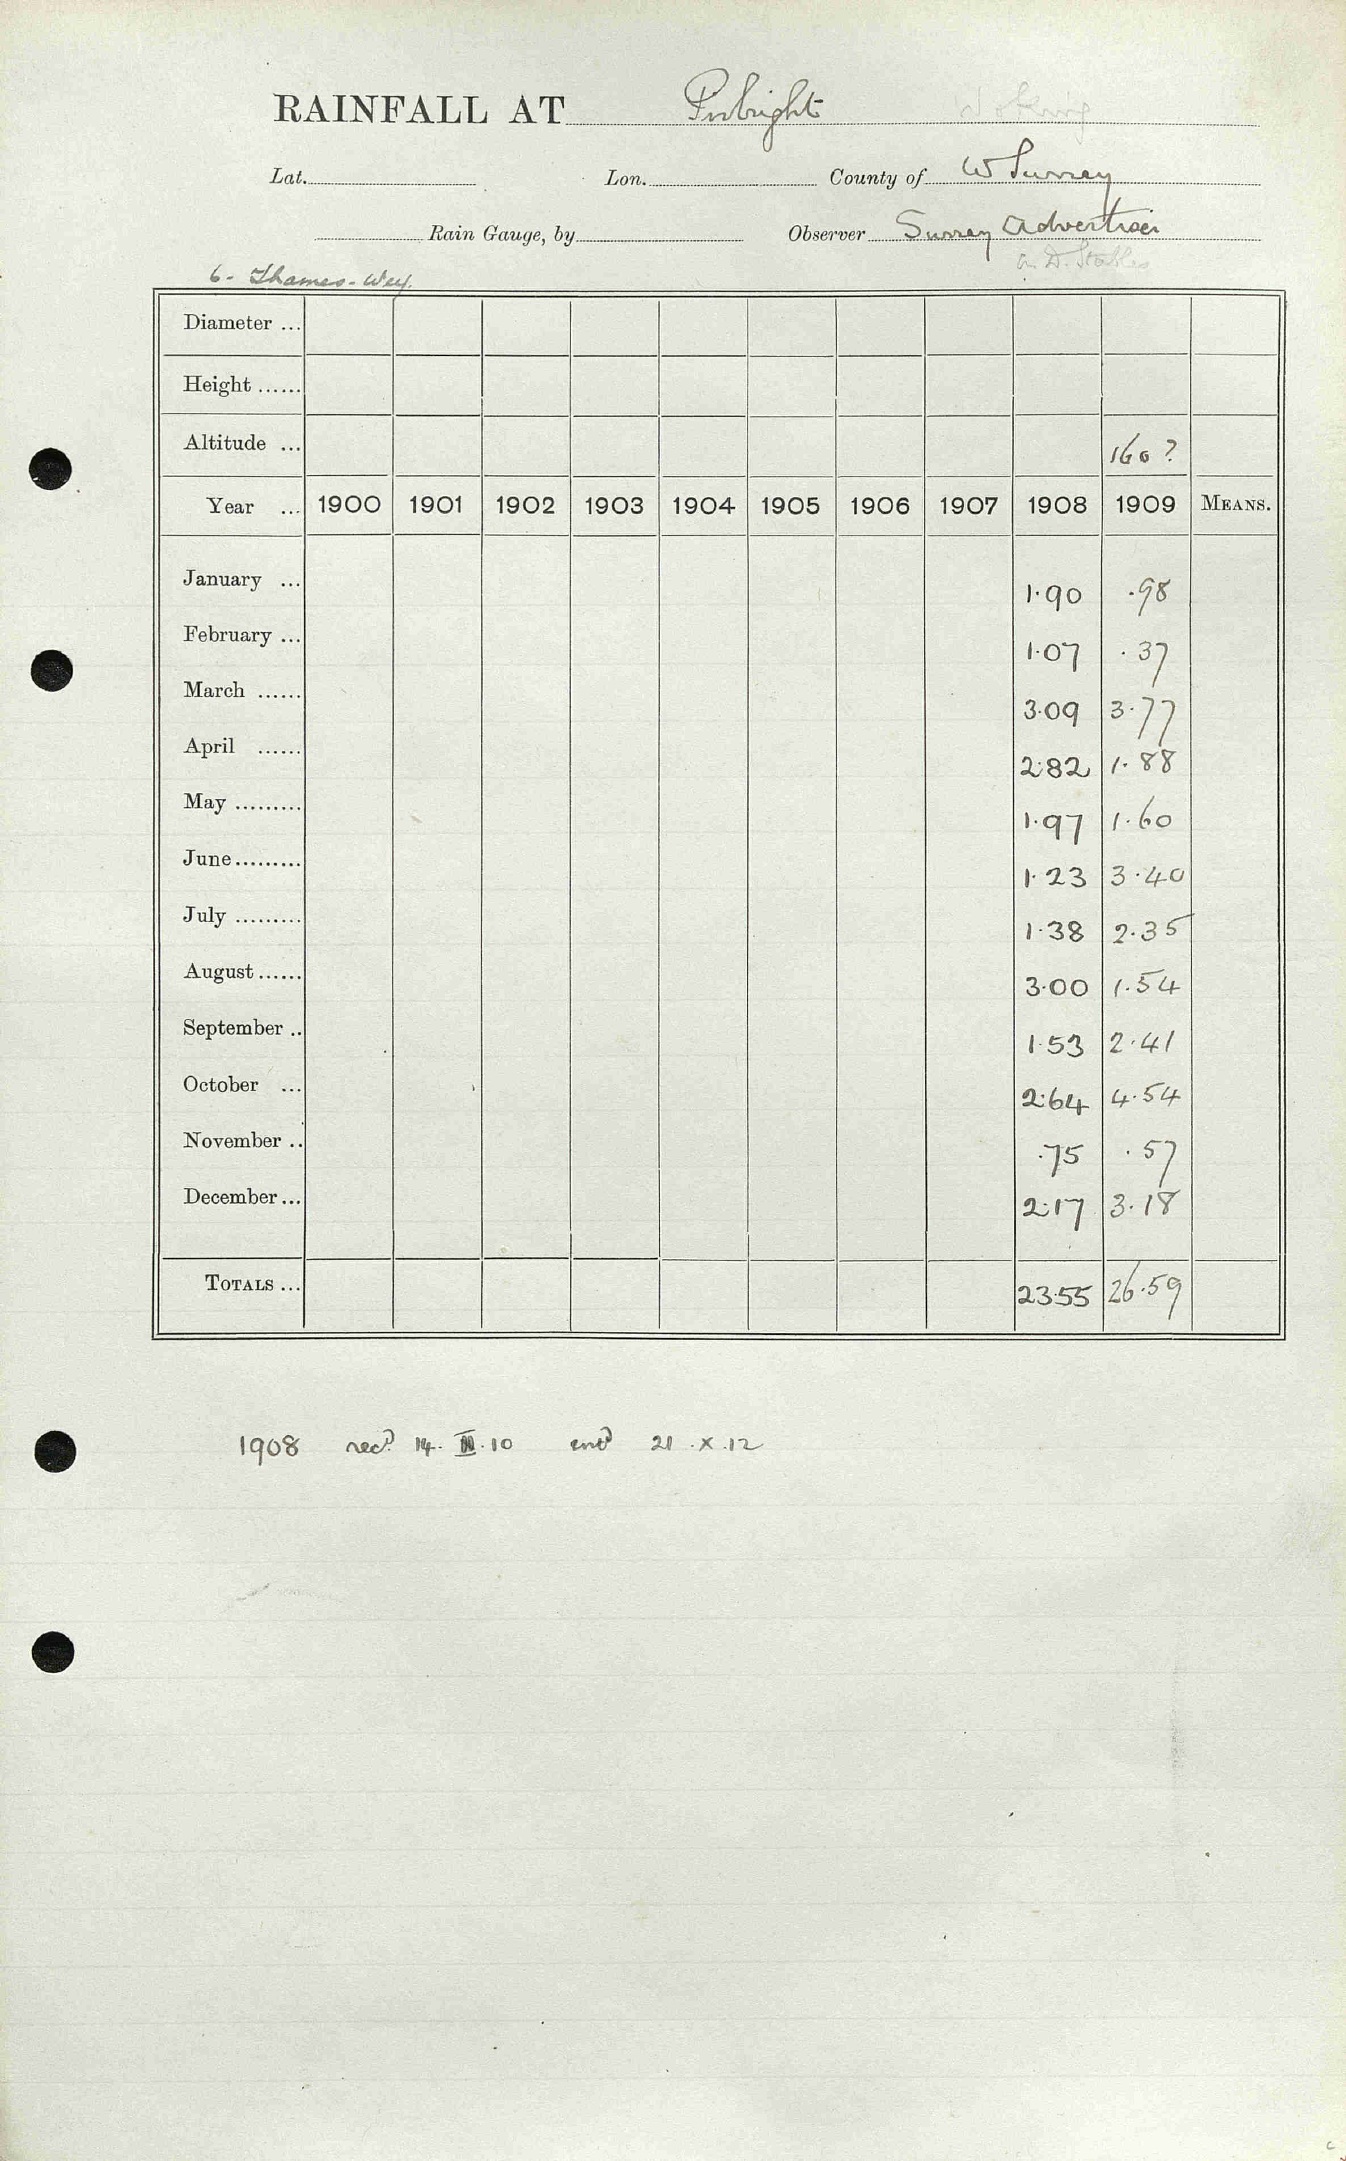 RAINFALL AT Pirbright Woking
Lat. Lon. County of W Surrey
Rain Gauge, by Observer Surrey Advertiser
D. Stables
6 - Thames - Wey.
Diameter ...
Height ......
Altitude ... 160 ?
Year ... 1900 1901 1902 1903 1904 1905 1906 1907 1908 1909 MEANS.
January ... 1.90 .98
February ... 1.07 .37
March ...... 3.09 3.77
April ...... 2.82 1.88
May ......... 1.97 1.60
June ......... 1.23 3.40
July ......... 1.38 2.35
August ...... 3.00 1.54
September .. 1.53 2.41
October ... 2.64 4.54
November .. .75 .57
December ... 2.17 3.18
TOTALS ... 23.55 26.59
1908 recd 14. III. 10 entd 21 . X . 12